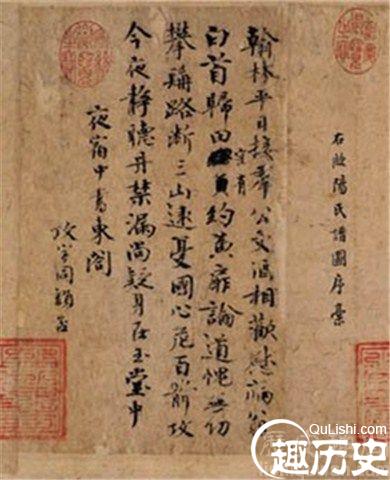 右歐陽氏譜圖序稾
翰林平日接羣公文酒相歡慰病翁
白首歸田空有約黃扉論道愧無功
攀髯路斷三山遠憂國心危百箭攻
今夜靜聽丹禁漏尚疑身在玉堂中
夜宿中書東閣
QuLishi.com
趣历史